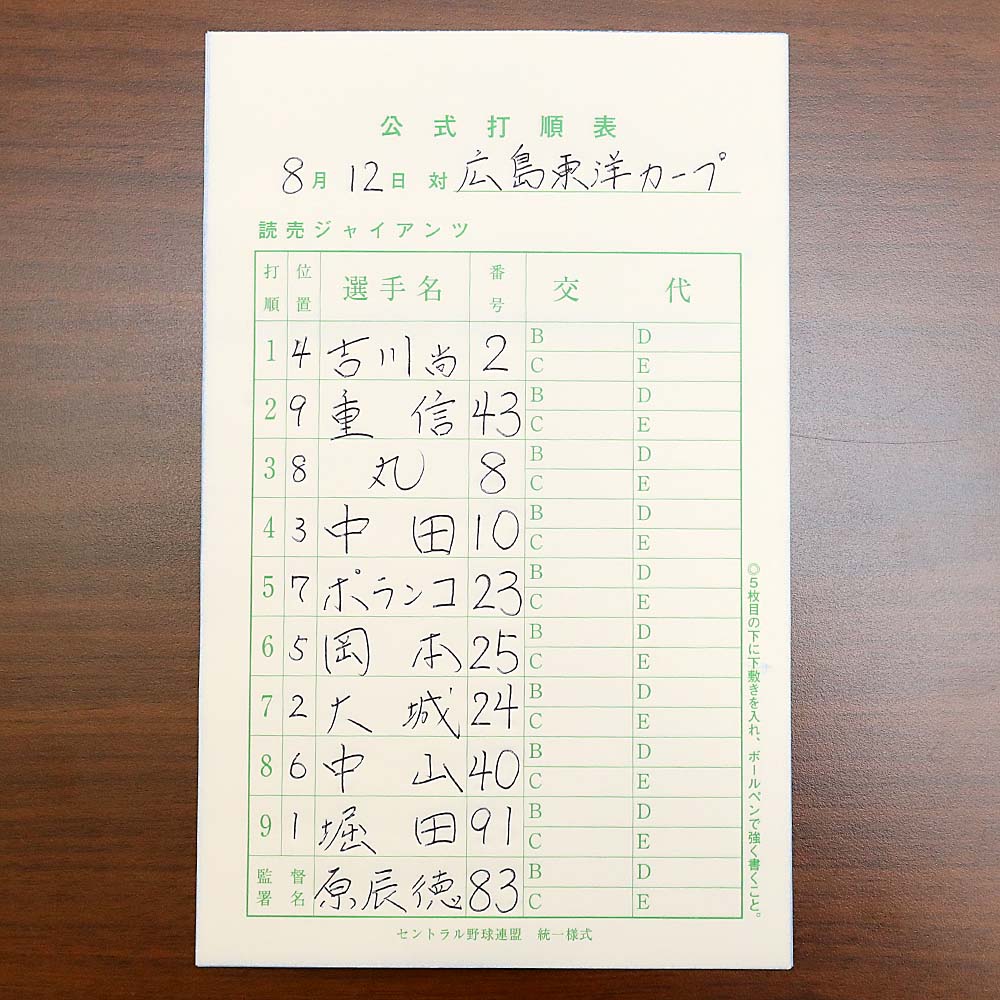 公式打順表
8月12日 対 広島東洋カープ
読売ジャイアンツ
打順 位置 選手名 番号 交代
1 4 吉川尚 2 B D
C E
2 9 重信 43 B D
C E
3 8 丸 8 B D
C E
4 3 中田 10 B D
C E
5 7 ポランコ 23 B D
C E
6 5 岡本 25 B D
C E
7 2 大城 24 B D
C E
8 6 中山 40 B D
C E
9 1 堀田 91 B D
C E
監督署名 原辰徳 83 B D
C E
セントラル野球連盟 統一様式
◎5枚目の下に下敷きを入れ、ボールペンで強く書くこと。